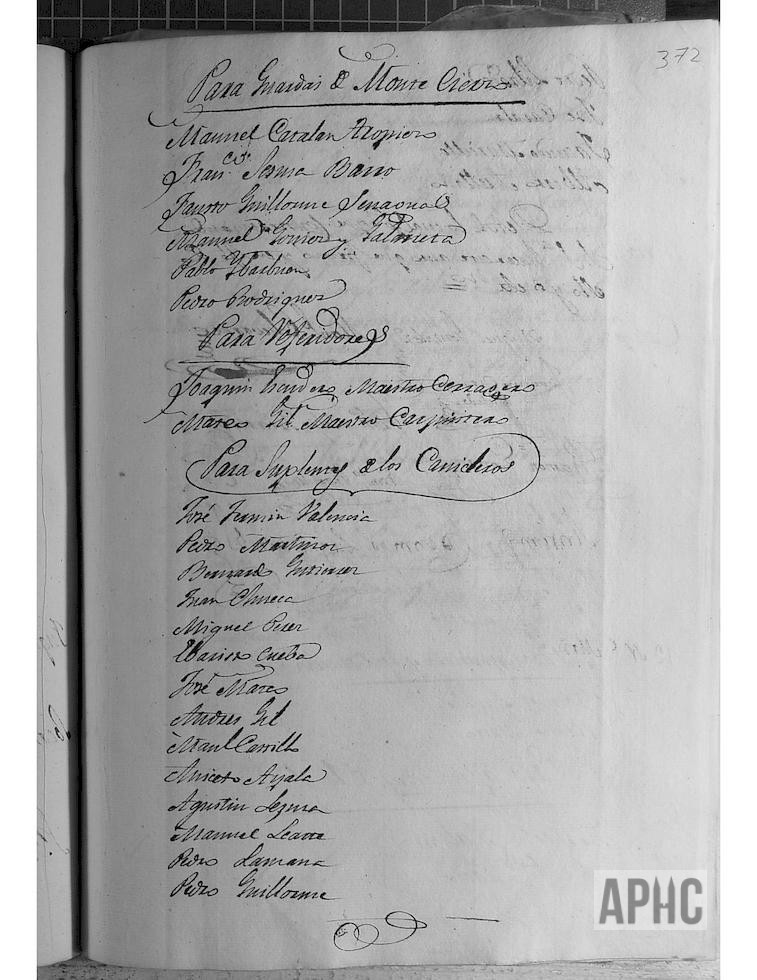 372
Para Guardas de Monte Cierzo
Manuel Catalan Aropiero
Fran.co Serma Barro
Fausto Guillorme
Manuel Gomez y Galarreta
Pablo Ybarbuen
Pedro Rodriguez
Para Veheedores
Joaquin Maestro Cerragero
Mateo Gil Maestro Carpintero
Para Suplentes de los Canideros
José Fermin Valencia
Pedro Martinez
Bernardo Gutierrez
Juan Chueca
Miguel Perez
Cueba
José Mateo
Andres Gil
Man.l Carrillo
Aniceto Ayala
Agustin Lezma
Manuel
Pedro Lamana
Pedro Guillorme
APHC